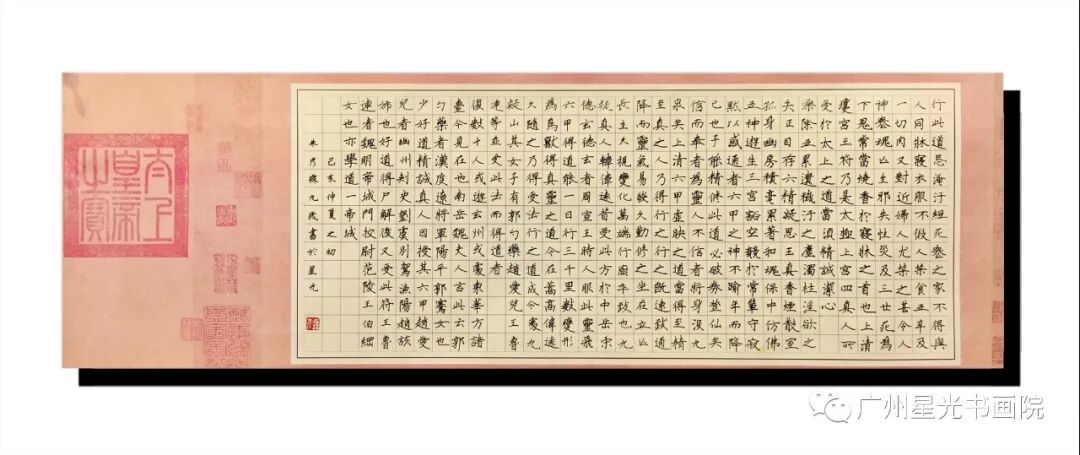 行此道忌淹汙經死喪之家不得與
人同牀寢衣服不假人禁食五辛及
一切肉又對近婦人尤禁之甚令人
神喪魂亡生邪失性災及三世死為
下鬼常當燒香於寢牀之首也上清
瓊宮玉符乃是太極上宮四真人所
受於太上之道當須精誠潔心
澡除五累遺穢汙之塵濁杜淫欲之
失正目存六精凝思玉真香煙散室
孤身幽房積毫累著和魂保中仿佛
五神遊生三宮豁空競於常輩守寂
黙以感通者六甲之神不踰年而降
已也子能精修此道必破券登仙矣
信而奉者為靈人不信者將身沒九
泉矣上清六甲虛映之道當得至精
至真之人乃得行之行之既速致通
降而靈氣易發久勤修之坐在立亡
長生久視變化萬端行廚卒致也九
疑真人韓偉遠昔受此方於中岳宋
德玄德玄者周宣王時人服此靈飛
六甲得道能一日行三千里數變形
為鳥獸得真靈之道今在嵩高偉遠
久隨之乃得受法行之道成今處九
疑山其女子有郭勺藥趙愛兒王魯
連等並受此法而得道者
復數十人或遊玄州或處東華方諸
臺今見在也南岳魏夫人言此云郭
勺藥者漢度遼將軍陽平郭騫女也
少好道精誠真人因授其六甲趙愛
兒者幽州刺史劉虞別駕漁陽趙該
姊也好道得尸解後又受此符王魯
連者魏明帝城門校尉范陵王伯綱
女也亦學道一帝城
己亥仲夏之初
朱乃 九 書於星光
太上
皇帝
之寶
广州星光书画院